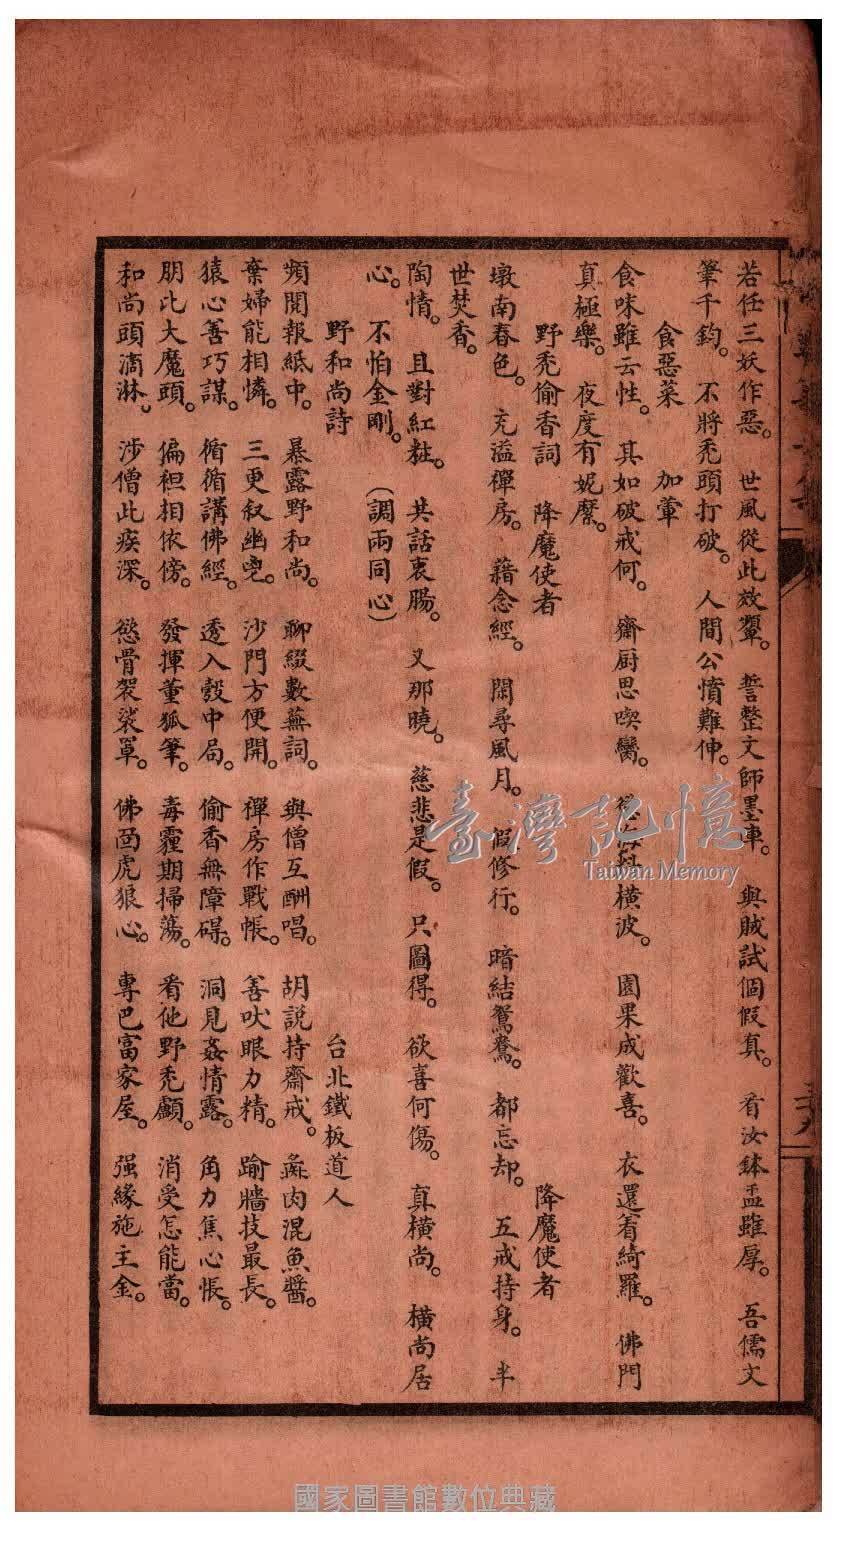 若任三妖作惡。世風從此效顰。誓整文師墨車。與賊試個假真。看汝鉢盂雖厚。吾儒文
筆千鈞。不將禿頭打破。人間公憤難伸。
食惡菜 加葷
食味雖云性。其如破戒何。齋厨思喫臠。慾海抖橫波。園果成歡喜。衣還着綺羅。佛門
真極樂。夜度有妮縻。
野禿偷香詞 降魔使者 降魔使者
墩南春色。充溢禪房。藉念經。閒尋風月。假修行。暗結鴛鴦。都忘却。五戒持身。半
世焚香。
陶情。且對紅粧。共話衷腸。又那曉。慈悲是假。只圖得。欲喜何傷。真橫尚。橫尚居
心。不怕金剛。(調兩同心)
野和尚詩 台北鐵板道人
頻閱報紙中。暴露野和尚。聊綴數蕪詞。與僧互酬唱。胡說持齋戒。彘肉混魚醬。
棄婦能相憐。三更叙幽兜。沙門方便開。禪房作戰帳。善吠眼力精。踰牆技最長。
猿心善巧謀。循循講佛經。透入彀中局。偷香無障碍。洞見姦情露。角力焦心悵。
朋比大魔頭。偏袒相依傍。發揮董狐筆。毒霾期掃蕩。看他野禿顱。消受怎能當。
和尚頭滴淋。涉僧此疾深。慾骨袈裟罩。佛面虎狼心。專巴富家屋。强緣施主金。
臺灣記憶
Taiwan Memory
國家圖書館數位典藏